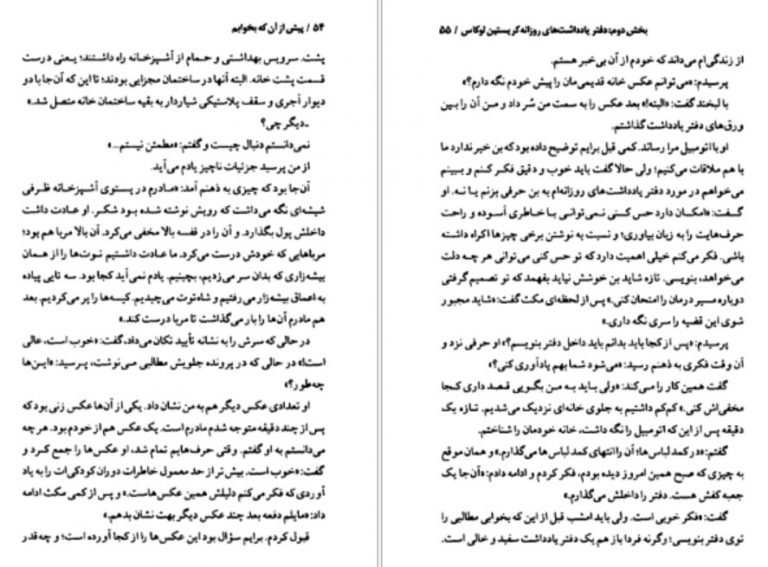 ۵۴ / پیش از آن که بخوابم
پشت. سرویس بهداشتی و حمام از آشپزخانه راه داشتند؛ یعنی درست
قسمت پشت خانه. البته آنها در ساختمان مجزایی بودند؛ تا این که آن‌جا با دو
دیوار آجری و سقف پلاستیکی شیاردار به بقیه ساختمان خانه متصل شد.»
ـ دیگر چی؟
نمی‌دانستم دنبال چیست و گفتم: «مطمئن نیستم...»
از من پرسید جزئیات ناچیز یادم می‌آید.
آن‌جا بود که چیزی به ذهنم آمد: «مادرم در پستوی آشپزخانه ظرفی
شیشه‌ای نگه می‌داشت که رویش نوشته شده بود شکر. او عادت داشت
داخلش پول بگذارد. و آن را در قفسه بالا مخفی می‌کرد. آن بالا مربا هم بود؛
مرباهایی که خودش درست می‌کرد. ما عادت داشتیم توت‌ها را از همان
بیشه‌زاری که بدان سر می‌زدیم، بچینیم. یادم نمی‌آید کجا بود. سه تایی پیاده
به اعماق بیشه‌زار می‌رفتیم و شاه‌توت می‌چیدیم. کیسه‌ها را پر می‌کردیم. بعد
هم مادرم آن‌ها را بار می‌گذاشت تا مربا درست کند.»
در حالی که سرش را به نشانه تأیید تکان می‌داد، گفت: «خوب است، عالی
است!» در حالی که در پرونده جلویش مطالبی می‌نوشت، پرسید: «این‌ها
چه‌طور؟»
او تعدادی عکس دیگر هم به من نشان داد. یکی از آن‌ها عکس زنی بود که
پس از چند دقیقه متوجه شدم مادرم است. یک عکس هم از خودم بود. هر چه
می‌دانستم به او گفتم. وقتی حرف‌هایم تمام شد، او عکس‌ها را جمع کرد و
گفت: «خوب است. بیش‌تر از حد معمول خاطرات دوران کودکی‌ات را به یاد
آوردی که فکر می‌کنم دلیلش همین عکس‌هاست.» و پس از کمی مکث ادامه
داد: «مایلم دفعه بعد چند عکس دیگر بهت نشان بدهم.»
قبول کردم. برایم سؤال بود این عکس‌ها را از کجا آورده است؛ و چه‌قدر
بخش دوم: دفتر یادداشت‌های روزانه کریستین لوکاس / ۵۵
از زندگی‌ام می‌داند که خودم از آن بی‌خبر هستم.
پرسیدم: «می‌توانم عکس خانه قدیمی‌مان را پیش خودم نگه دارم؟»
با لبخند گفت: «البته!» بعد عکس را به سمت من سُر داد و من آن را بین
ورق‌های دفتر یادداشت گذاشتم.
او با اتومبیل مرا رساند. کمی قبل برایم توضیح داده بود که بن خبر ندارد ما
با هم ملاقات می‌کنیم؛ ولی حالا گفت باید خوب و دقیق فکر کنم و ببینم
می‌خواهم در مورد دفتر یادداشت‌های روزانه‌ام به بن حرفی بزنم یا نه. او
گفت: «امکان دارد حس کنی نمی‌توانی با خاطری آسوده و راحت
حرف‌هایت را به زبان بیاوری؛ و نسبت به نوشتن برخی چیزها اکراه داشته
باشی. فکر می‌کنم خیلی اهمیت دارد که تو حس کنی می‌توانی هر چه دلت
می‌خواهد، بنویسی. تازه شاید بن خوشش نیاید بفهمد که تو تصمیم گرفتی
دوباره مسیر درمان را امتحان کنی.» پس از لحظه‌ای مکث گفت: «شاید مجبور
شوی این قضیه را سری نگه داری.»
پرسیدم: «پس از کجا باید بدانم باید داخل دفتر بنویسم؟» او حرفی نزد و
آن وقت فکری به ذهنم رسید: «می‌شود شما بهم یادآوری کنی؟»
گفت همین کار را می‌کند: «ولی باید به من بگویی قصد داری کجا
مخفی‌اش کنی.» کم‌کم داشتیم به جلوی خانه‌ای نزدیک می‌شدیم. تازه یک
دقیقه پس از این که اتومبیل را نگه داشت، خانه خودمان را شناختم.
گفتم: «در کمد لباس‌ها؛ آن را انتهای کمد لباس‌ها می‌گذارم.» و همان موقع
به چیزی که صبح همین امروز دیده بودم، فکر کردم و ادامه دادم: «آن‌جا یک
جعبه کفش هست. دفتر را داخلش می‌گذارم.»
گفت: «فکر خوبی است. ولی باید امشب قبل از این که بخوابی مطالبی را
توی دفتر بنویسی؛ وگرنه فردا باز هم یک دفتر یادداشت سفید و خالی است.